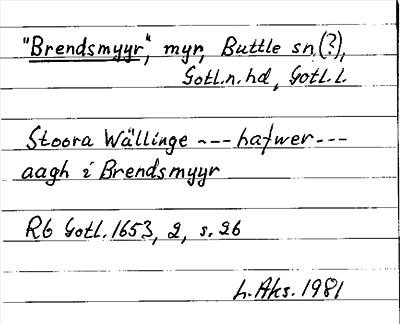 "Brendsmyyr", myr, Buttle sn(?),
Gotl.n.hd, Gotl.l.
Stoora Wällinge --- hafwer ---
aagh i Brendsmyyr
Rb Gotl. 1653, 2, s. 26
L. Aks. 1981